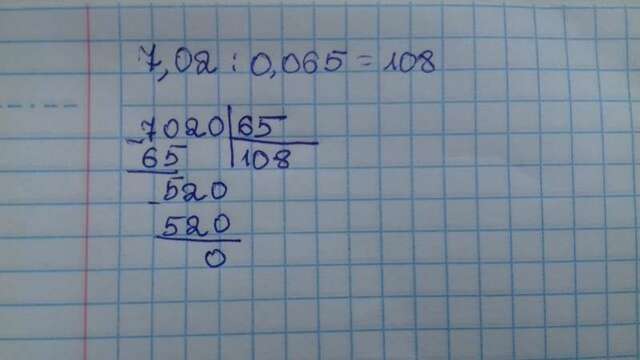 7,02 : 0,065 = 108
- 7020 | 65
65 | 108
- 520
520
0